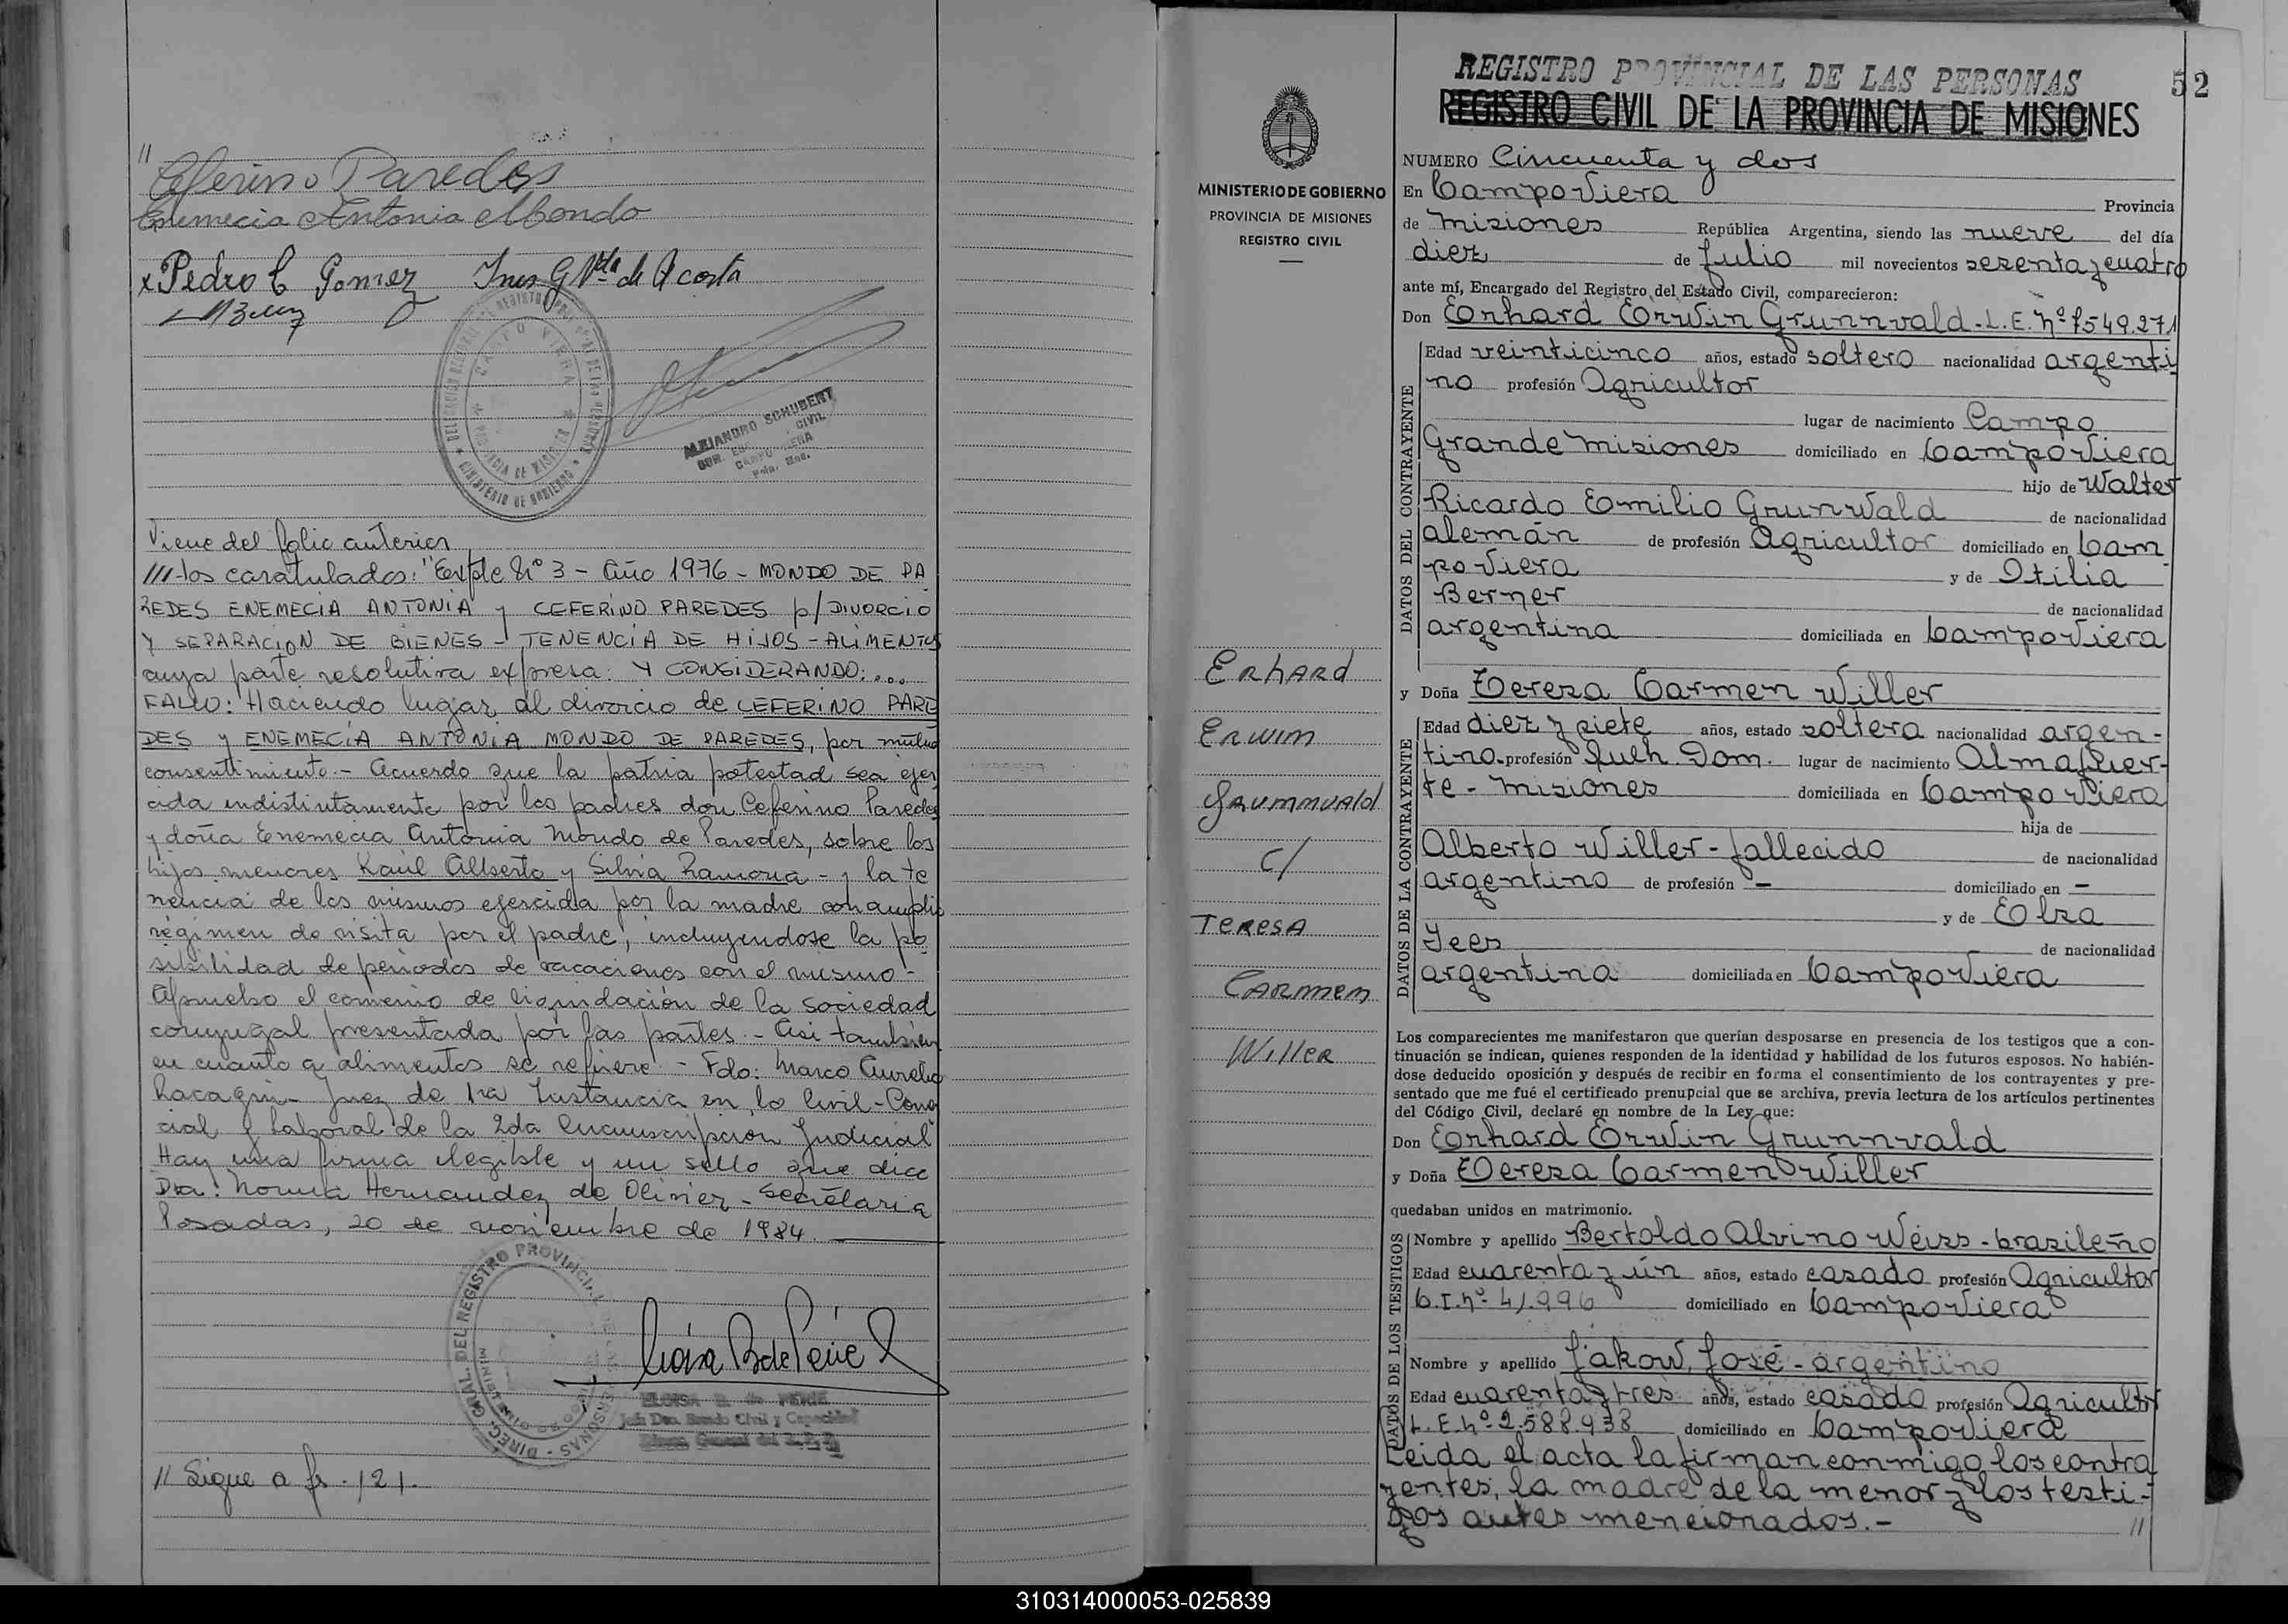 //
Ceferino Paredes
Enemecia Antonia Mondo
x Pedro C Gomez Ines G Vda de Acosta
ALEJANDRO SCHUBERT
CIVIL
CAMPO VIERA
Pcia. Mnes.
Viene del folio anterior
///-los caratulados: "Expte Nº 3 - Año 1976 - MONDO DE PA
REDES ENEMECIA ANTONIA y CEFERINO PAREDES p/ DIVORCIO
Y SEPARACION DE BIENES - TENENCIA DE HIJOS - ALIMENTOS
cuya parte resolutiva expresa: Y CONSIDERANDO:...
FALLO: Haciendo lugar al divorcio de CEFERINO PARE
DES y ENEMECIA ANTONIA MONDO DE PAREDES, por mutuo
consentimiento.- Acuerdo que la patria potestad sea ejer
cida indistintamente por los padres don Ceferino Paredes
y doña Enemecia Antonia Mondo de Paredes, sobre los
hijos menores Raúl Alberto y Silvia Ramona - y la te
nencia de los mismos ejercida por la madre con amplio
régimen de visita por el padre, incluyendose la po
sibilidad de períodos de vacaciones con el mismo.-
Apruebo el convenio de liquidación de la sociedad
conyugal presentada por las partes.- Asi también
en cuanto a alimentos se refiere.- Fdo: Marco Aurelio
Racagni - Juez de 1ra Instancia en lo Civil - Comer
cial y Laboral de la 2da Circunscripción Judicial
Hay una firma ilegible y un sello que dice
Dra: Norma Hernandez de Olivier - Secretaria
Posadas, 20 de noviembre de 1984.
ELOISA B. de PERIE
Jefe Dto. Estado Civil y Capacidad
// Sigue a fs. 121.
REGISTRO PROVINCIAL DE LAS PERSONAS
52
REGISTRO CIVIL DE LA PROVINCIA DE MISIONES
MINISTERIO DE GOBIERNO
PROVINCIA DE MISIONES
REGISTRO CIVIL
Erhard
Erwim
Grummvald
c/
Teresa
Carmem
Willer
NUMERO Cincuenta y dos
En Campo Viera Provincia
de Misiones República Argentina, siendo las nueve del día
diez de Julio mil novecientos sesenta y cuatro
ante mí, Encargado del Registro del Estado Civil, comparecieron:
Don Erhard Erwin Grunnvald - L.E. Nº 7.549.271
DATOS DEL CONTRAYENTE
Edad veinticinco años, estado soltero nacionalidad argenti
no profesión Agricultor
lugar de nacimiento Campo
Grande Misiones domiciliado en Campo Viera
hijo de Walter
Ricardo Emilio Grunwald de nacionalidad
alemán de profesión Agricultor domiciliado en Cam
po Viera y de Otilia
Berner de nacionalidad
argentina domiciliada en Campo Viera
y Doña Teresa Carmen Willer
DATOS DE LA CONTRAYENTE
Edad diez y siete años, estado soltera nacionalidad argen-
tina profesión Queh. Dom. lugar de nacimiento Almafuer-
te - Misiones domiciliada en Campo Viera
hija de
Alberto Willer - fallecido de nacionalidad
argentino de profesión - domiciliado en -
y de Elsa
Yees de nacionalidad
argentina domiciliada en Campo Viera
Los comparecientes me manifestaron que querían desposarse en presencia de los testigos que a con-
tinuación se indican, quienes responden de la identidad y habilidad de los futuros esposos. No habién-
dose deducido oposición y después de recibir en forma el consentimiento de los contrayentes y pre-
sentado que me fué el certificado prenupcial que se archiva, previa lectura de los artículos pertinentes
del Código Civil, declaré en nombre de la Ley que:
Don Erhard Erwin Grunnvald
y Doña Teresa Carmen Willer
quedaban unidos en matrimonio.
DATOS DE LOS TESTIGOS
Nombre y apellido Bertoldo Alvino Weiss - brasileño
Edad cuarenta y ún años, estado casado profesión Agricultor
C.I. nº 41.996 domiciliado en Campo Viera
Nombre y apellido Jakow, José - argentino
Edad cuarenta y tres años, estado casado profesión Agricultor
L.E. Nº 2.588.938 domiciliado en Campo Viera
Leida el acta la firman conmigo los contra
yentes, la madre de la menor y los testi-
gos antes mencionados.- //
310314000053-025839